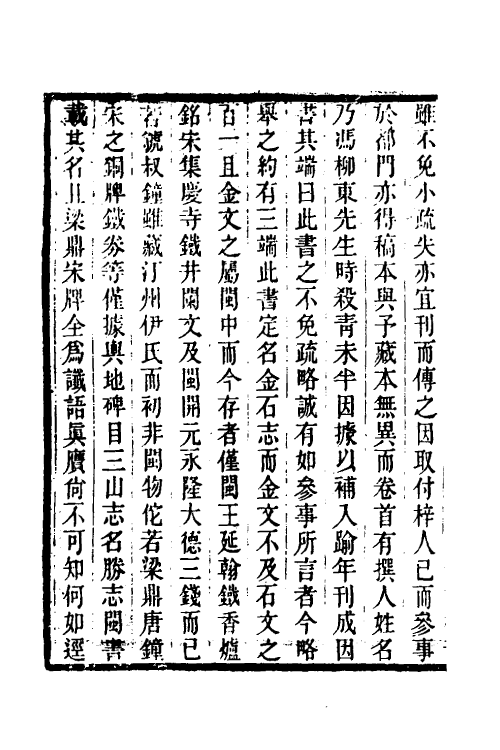 雖不免小疏失亦宜刊而傳之因取付梓人已而參事
於都門亦得稿本與予藏本無異而卷首有撰人姓名
乃馮柳東先生時殺青未半因據以補入踰年刊成因
書其端曰此書之不免疏略誠有如參事所言者今略
舉之約有三端此書定名金石志而金文不及石文之
百一且金文之屬閩中而今存者僅閩王延翰鐵香爐
銘宋集慶寺鐵井闌文及閩開元永隆大德三錢而已
若虢叔鐘雖藏汀州伊氏而初非閩物佗若梁鼎唐鐘
宋之銅牌鐵券等僅據輿地碑目三山志名勝志閩書
載其名且梁鼎宋牌全爲讖語眞贋尙不可知何如逕